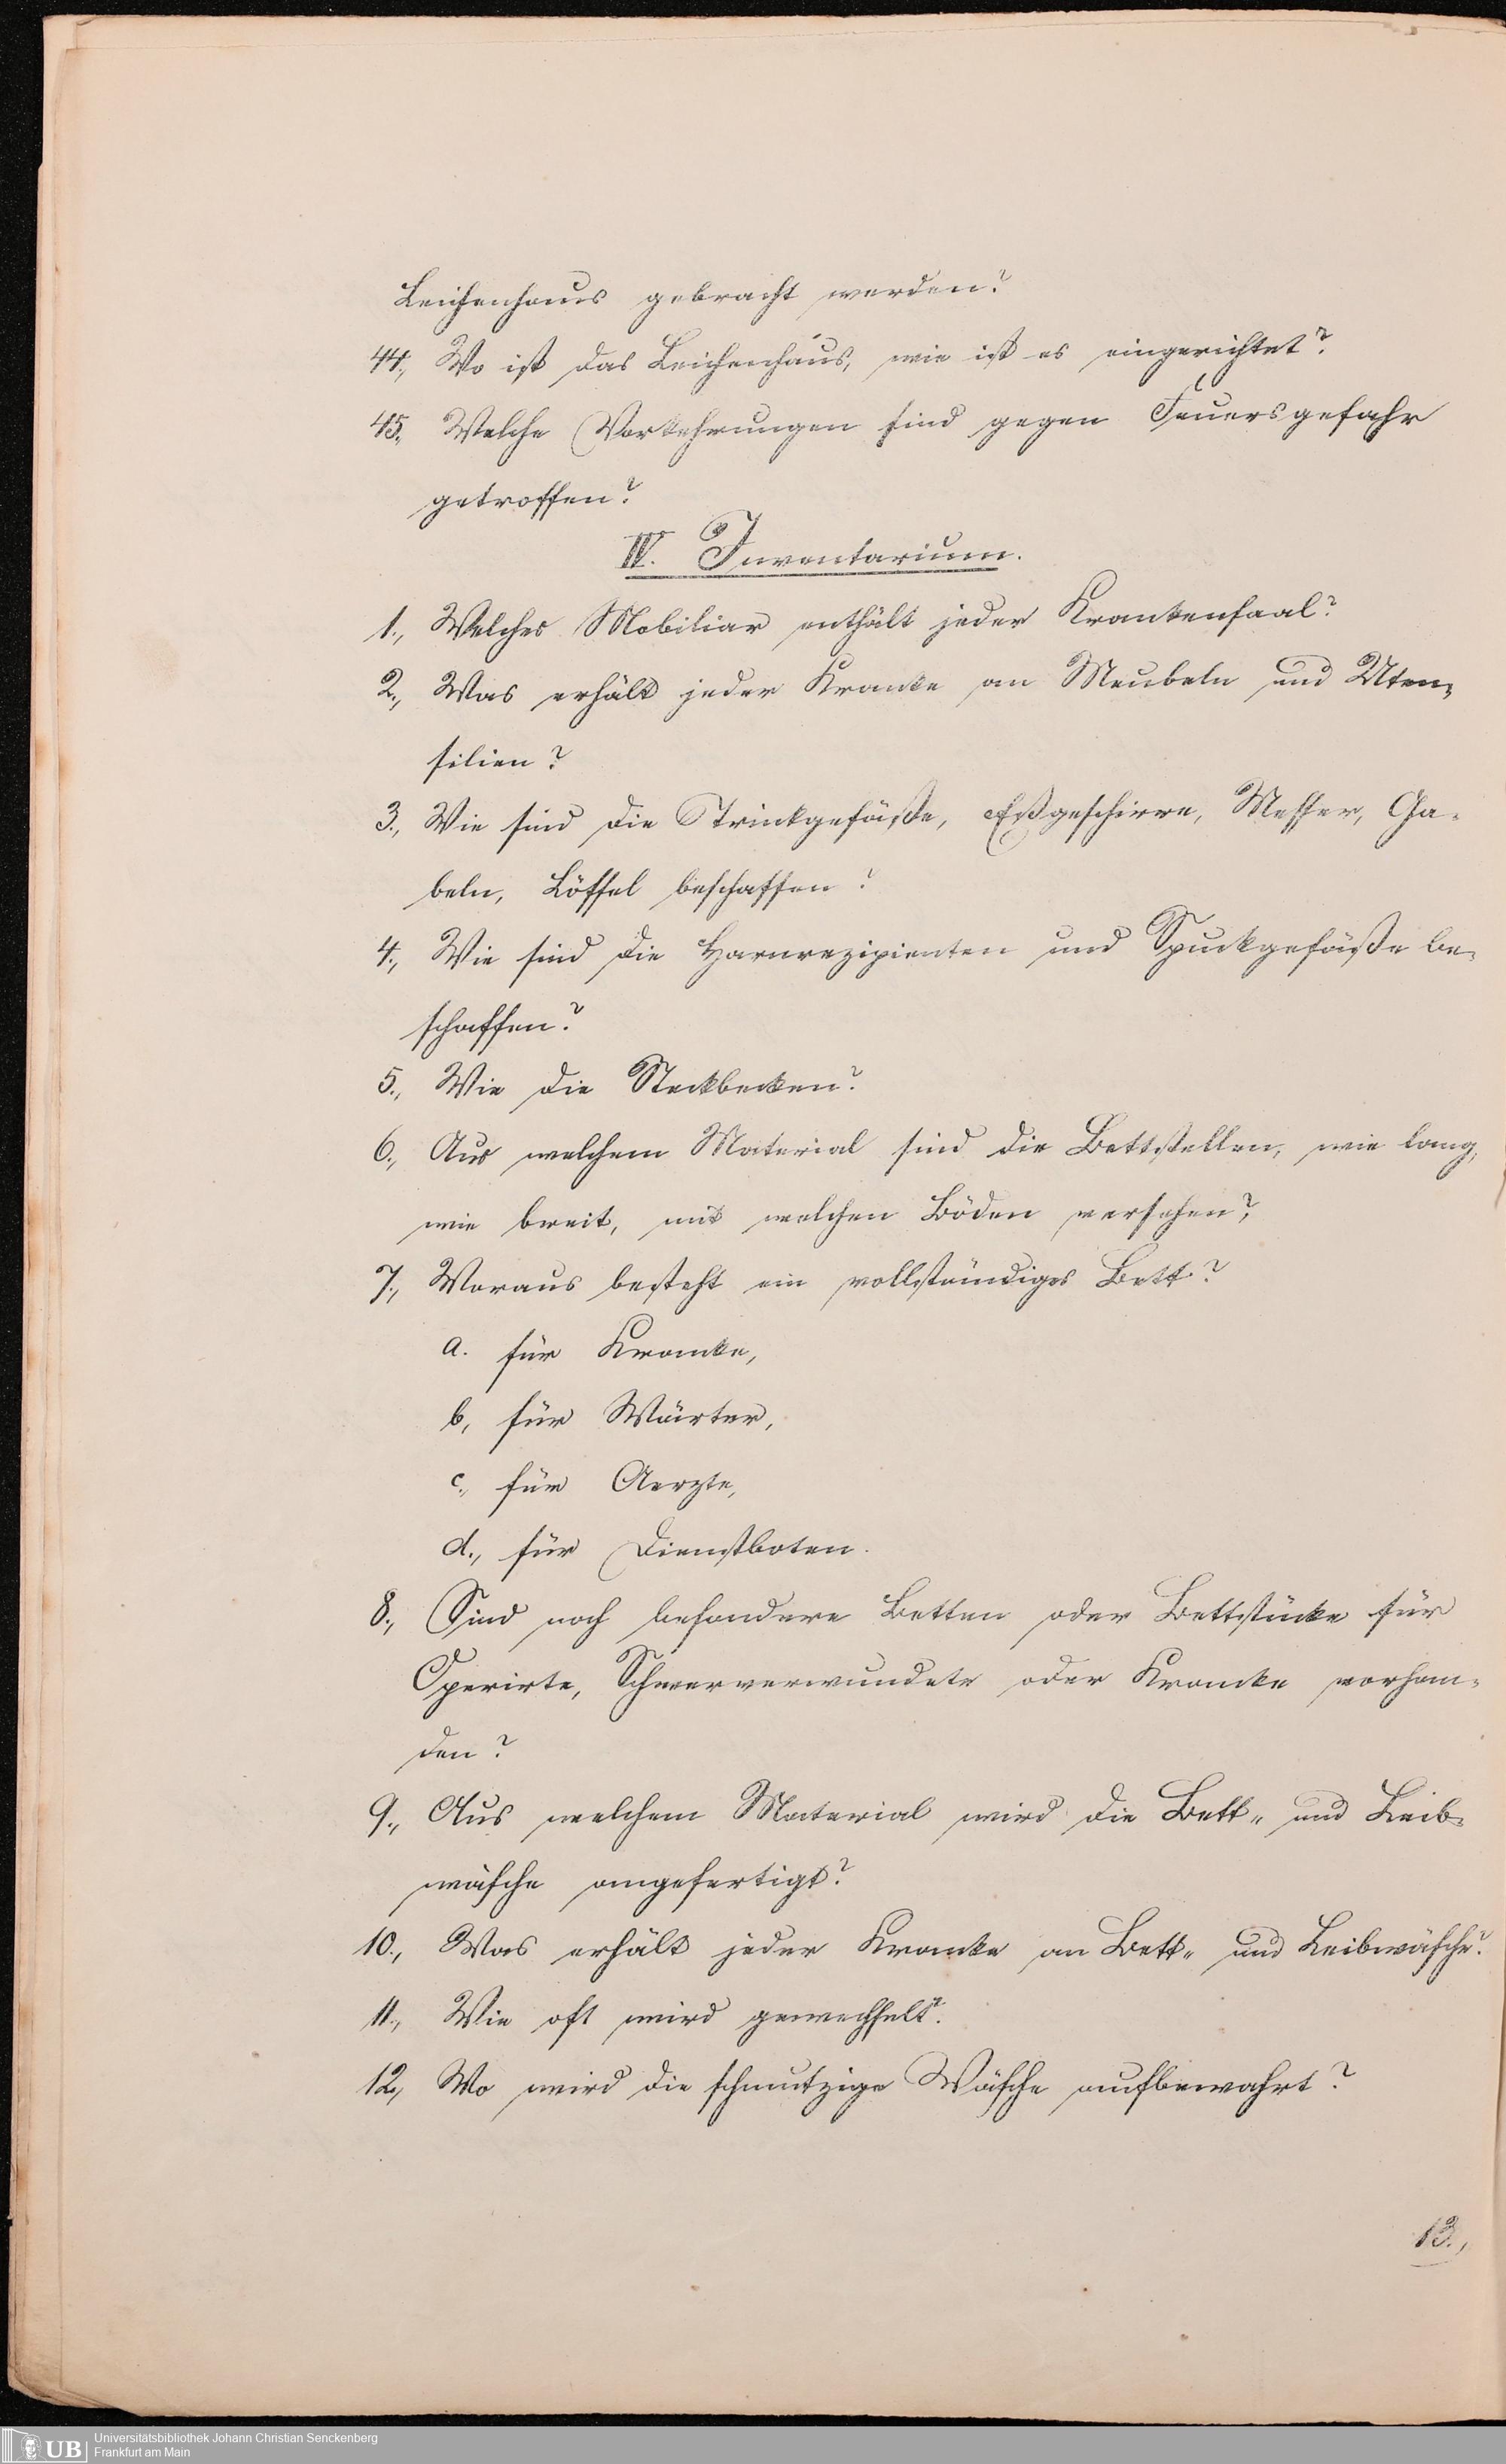 Leichenhaus gebracht werden?
44., Wo ist das Leichenhaus, wie ist es eingerichtet?
45., Welche Vorkehrungen sind gegen Feuersgefahr
getroffen?
IV. Inventarium.
1., Welches Mobiliar enthält jeder Krankensaal?
2., Was erhält jeder Kranke an Meubeln und Uten-
silien?
3., Wie sind die Trinkgefäße, Eßgeschirre, Messer, Ga-
beln, Löffel beschaffen?
4., Wie sind die Harnrezipienten und Spuckgefäße be-
schaffen?
5., Wie die Steckbecken?
6., Aus welchem Material sind die Bettstellen, wie lang,
wie breit, mit welchen Böden versehen?
7., Woraus besteht ein vollständiges Bett?
a. für Kranke,
b, für Wärter,
c., für Aerzte,
d., für Dienstboten.
8., Sind noch besondere Betten oder Bettstücke für
Operirte, Schwerverwundete oder Kranke vorhan-
den?
9., Aus welchem Material wird die Bett- und Leib-
wäsche angefertigt?
10., Was erhält jeder Kranke an Bett- und Leibwäsche?
11., Wie oft wird gewechselt?
12., Wo wird die schmutzige Wäsche aufbewahrt?
13.,
UB
Universitätsbibliothek Johann Christian Senckenberg
Frankfurt am Main